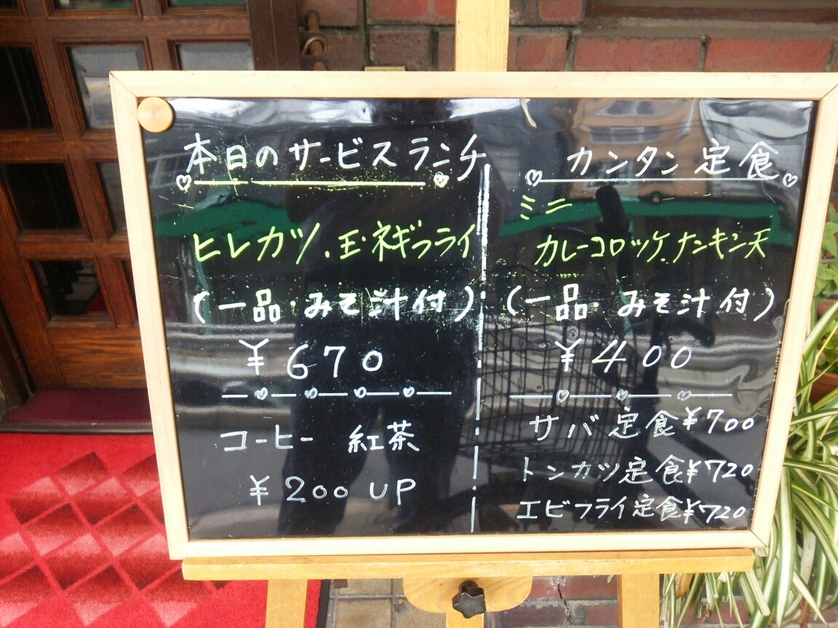 本日のサービスランチ
ヒレカツ.玉ネギフライ
(一品・みそ汁付)
¥670
コーヒー 紅茶
¥200 UP
カンタン定食
ミニ
カレーコロッケ.ナンキン天
(一品・みそ汁付)
¥400
サバ定食¥700
トンカツ定食¥720
エビフライ定食¥720